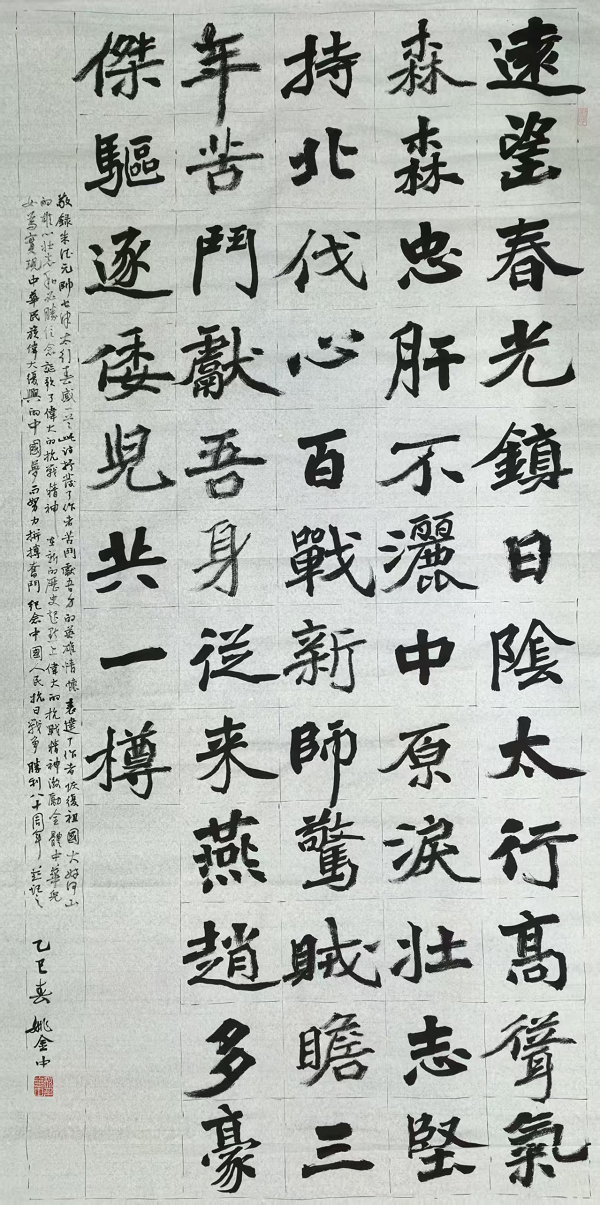 遠望春光鎮日陰太行高聳氣
森森忠肝不灑中原淚壯志堅
持北伐心百戰新師驚賊瞻三
年苦鬥獻吾身從来燕趙多豪
傑驅逐倭児共一樽
敬錄朱德元帥七律太行春感一首此詩抒發了作者苦鬥獻吾身的英雄情懷表達了作者恢復祖國大好河山
的雄心壯志和必勝信念謳歌了偉大的抗戰精神在新的歷史起點上偉大的抗戰精神激勵全體中華兒
女為實現中華民族偉大復興的中國夢而努力拼搏奮鬥紀念中國人民抗日戰争勝利八十周年並記之 乙巳春 姚金中